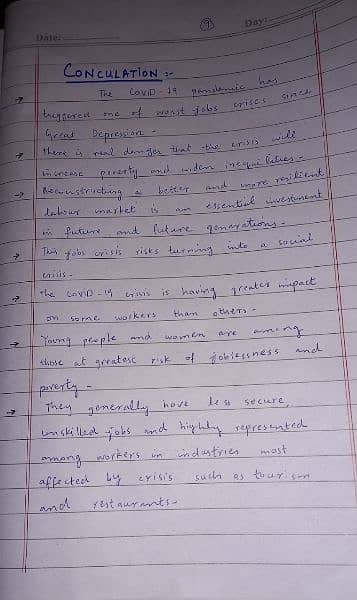 9
Date: Day:
CONCULATION :-
→ The COVID-19 pandemic has
triggered one of worst jobs crises since
Great Depression.
→ There is real danger that the crisis will
increase poverty and widen inequilaties.
→ Reconstructing a better and more resilient
labour market is an essential investment
in future and future generations.
→ This jobs crisis risks turning into a social
crisis.
→ The COVID-19 crisis is having greater impact
on some workers than others.
→ Young people and women are among
those at greatest risk of joblessness and
poverty.
→ They generally have less secure,
unskilled jobs and highly represented
among workers in industries most
affected by crisis such as tourism
and restaurants.